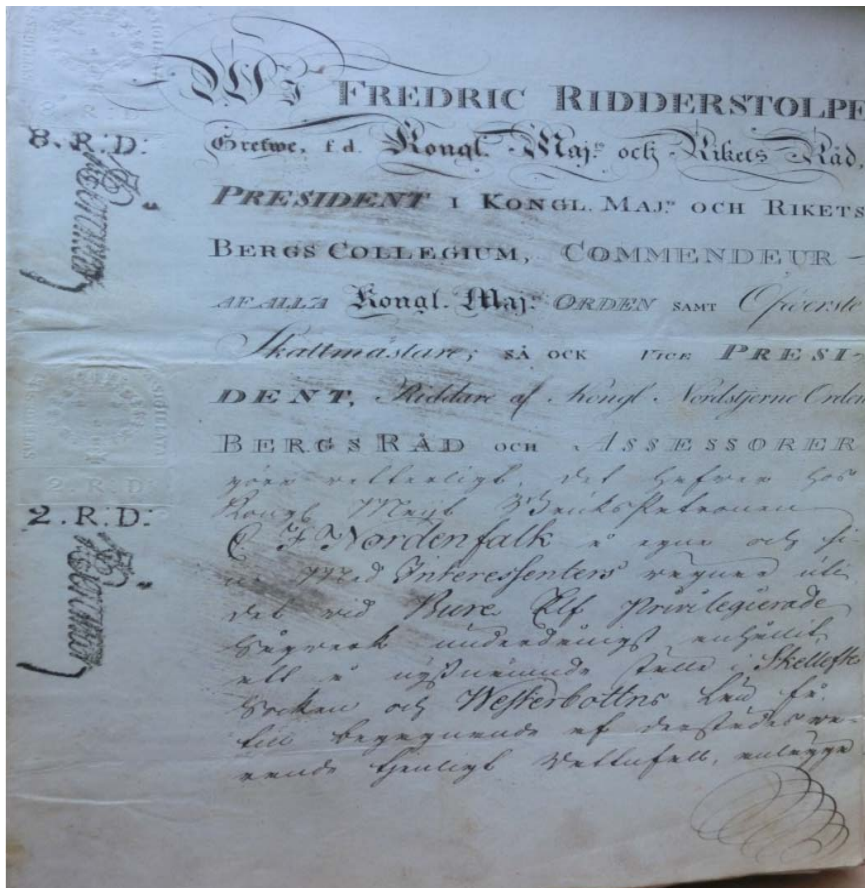 Wi FREDRIC RIDDERSTOLPE
8. R. D:
Grefwe, f.d. Kongl. Maj:ts och Rikets Råd,
PRESIDENT I KONGL. MAJ:TS OCH RIKETS
BERGS COLLEGIUM, COMMENDEUR -
AF ALLA Kongl. Maj:ts ORDEN SAMT Öfverste
Skattmästare, SÅ OCK VICE PRESI-
DENT, Riddare af Kongl Nordstjerne Orden
BERGSRÅD OCH ASSESSORER
göre vetterligt, det hafver hos
2. R. D:
Kongl Majt Bruks Patronen
2. R. D:
C F Nordenfalk å egne och si-
ne Med Interessenters vägnar uti
det vid Bure Elf Privilegierade
Sågverk underdånigst anhållit
att å nyssnämnde ställe i Skellefte
Socken och Westerbottns Län få,
till begagnande af derstädes va-
rande tjenligt Vattufall, anlägga